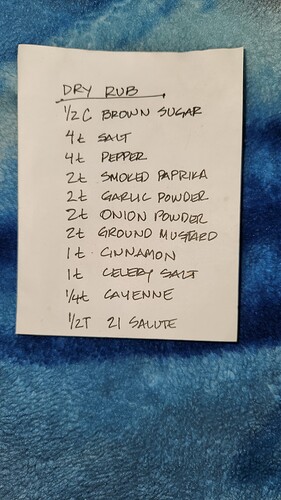 DRY RUB
1/2 C BROWN SUGAR
4t SALT
4t PEPPER
2t SMOKED PAPRIKA
2t GARLIC POWDER
2t ONION POWDER
2t GROUND MUSTARD
1t CINNAMON
1t CELERY SALT
1/4t CAYENNE
1/2T 21 SALUTE